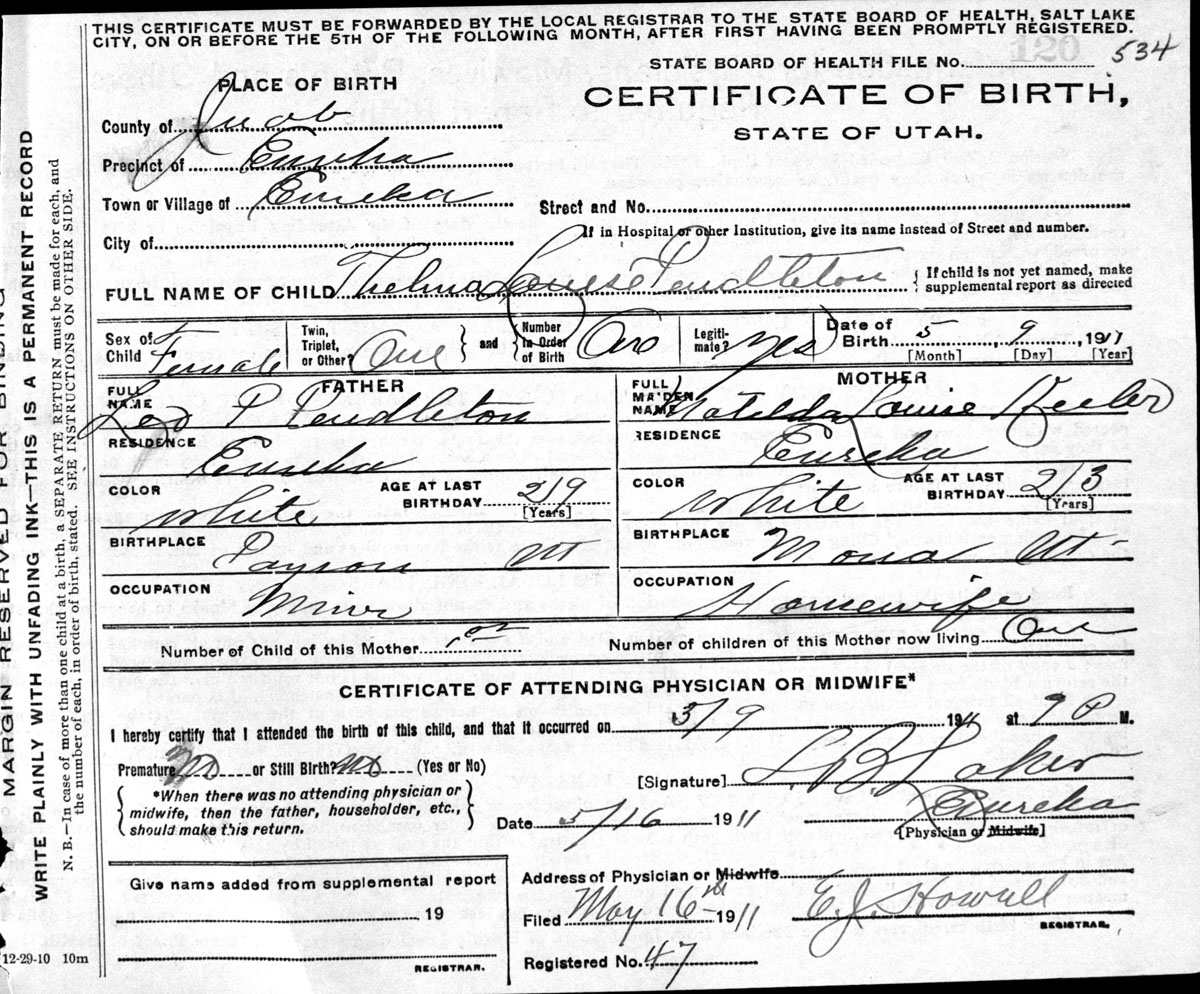 THIS CERTIFICATE MUST BE FORWARDED BY THE LOCAL REGISTRAR TO THE STATE BOARD OF HEALTH, SALT LAKE
CITY, ON OR BEFORE THE 5TH OF THE FOLLOWING MONTH, AFTER FIRST HAVING BEEN PROMPTLY REGISTERED.
STATE BOARD OF HEALTH FILE No. 534
PLACE OF BIRTH
CERTIFICATE OF BIRTH,
STATE OF UTAH.
County of Juab
Precinct of Eureka
Town or Village of Eureka
Street and No.
City of
If in Hospital or other Institution, give its name instead of Street and number.
FULL NAME OF CHILD Thelma Louise Pendleton { If child is not yet named, make
supplemental report as directed
Sex of Child Female
Twin, Triplet, or Other? One } and { Number in Order of Birth
Legiti-mate? Yes
Date of Birth 5 9, 1911
[Month] [Day] [Year]
FATHER
FULL NAME Leo P Pendleton
MOTHER
FULL MAIDEN NAME Matelda Louise
RESIDENCE Eureka
RESIDENCE Eureka
COLOR White AGE AT LAST BIRTHDAY 29 [Years]
COLOR White AGE AT LAST BIRTHDAY 23 [Years]
BIRTHPLACE Payson Ut
BIRTHPLACE Mona Ut
OCCUPATION Miner
OCCUPATION Housewife
Number of Child of this Mother 1st Number of children of this Mother now living One
CERTIFICATE OF ATTENDING PHYSICIAN OR MIDWIFE*
I hereby certify that I attended the birth of this child, and that it occurred on 5/9 1911 at 9 P M.
Premature No or Still Birth? No (Yes or No)
[Signature]
{ *When there was no attending physician or
midwife, then the father, householder, etc.,
should make this return. }
Eureka
Date 5/16 1911 [Physician or Midwife]
Give name added from supplemental report
19
REGISTRAR.
Address of Physician or Midwife
Filed May 16th 1911 E. J. Howell
REGISTRAR.
Registered No. 47
12-29-10 10m
MARGIN RESERVED FOR BINDING
WRITE PLAINLY WITH UNFADING INK—THIS IS A PERMANENT RECORD
N. B.—In case of more than one child at a birth, a SEPARATE RETURN must be made for each, and
the number of each, in order of birth, stated. SEE INSTRUCTIONS ON OTHER SIDE.